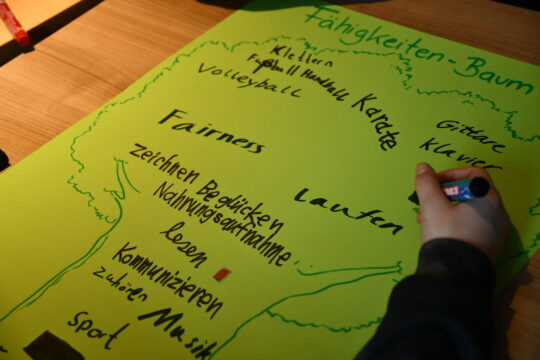 Fähigkeiten-Baum
Klettern
Fußball Handball
Volleyball
Karate
Gitarre
Klavier
Fairness
zeichnen Beglücken
Nahrungsaufnahme
Laufen
lesen
Kommunizieren
zuhören
Musik
Sport